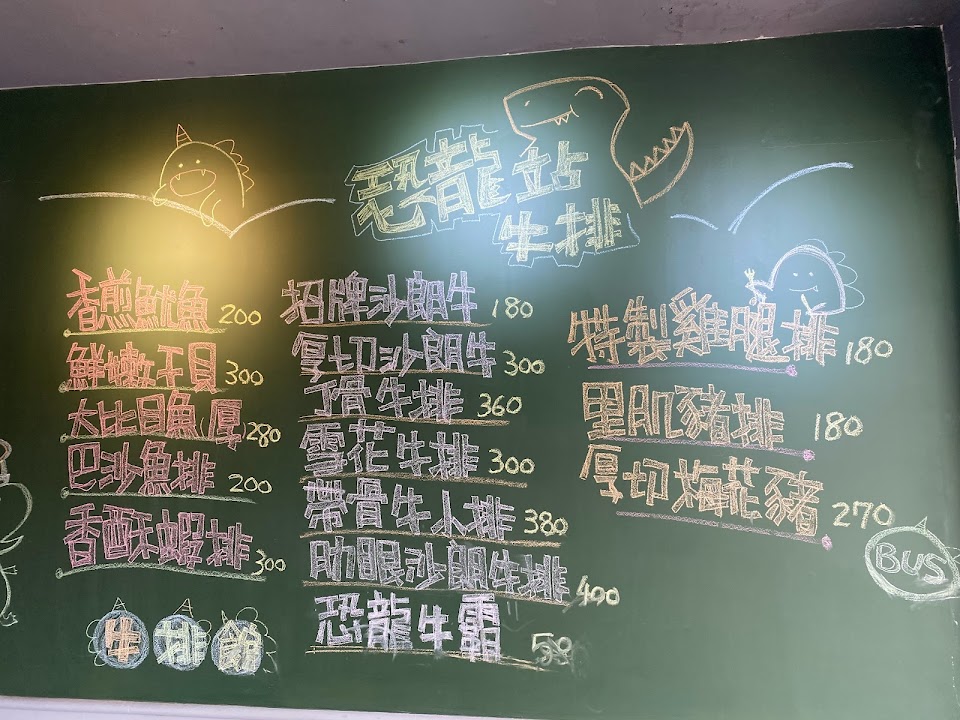 恐龍站
牛排
香煎魷魚 200
鮮嫩干貝 300
大比目魚(厚) 280
巴沙魚排 200
香酥蝦排 300
牛排館
招牌沙朗牛 180
厚切沙朗牛 300
丁骨牛排 360
雪花牛排 300
帶骨牛小排 380
肋眼沙朗牛排 400
恐龍牛霸
特製雞腿排 180
里肌豬排 180
厚切梅花豬 270
BUS